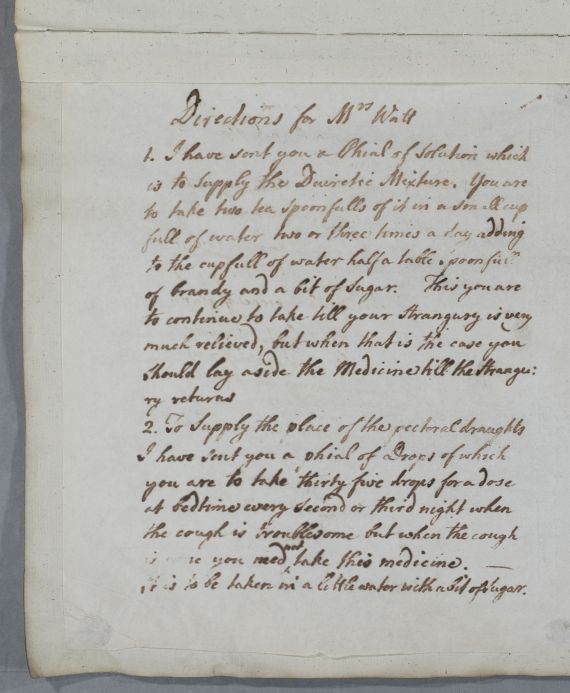 Directions for Mrs Watt
1. I have sent you a Phial of Solution which
is to supply the Diuretic Mixture. You are
to take two tea spoonfulls of it in a small cup
full of water two or three times a day adding
to the cupfull of water half a table spoonfull
of brandy and a bit of sugar. This you are
to continue to take till your Strangury is very
much relieved, but when that is the case you
should lay aside the Medicine till the Strangu:
ry returns
2. To supply the place of the pectoral draughts
I have sent you a phial of Drops of which
you are to take thirty five drops for a dose
at bedtime every second or third night when
the cough is troublesome but when the cough
is you need not take this medicine. —
It is to be taken in a little water with a bit of Sugar.